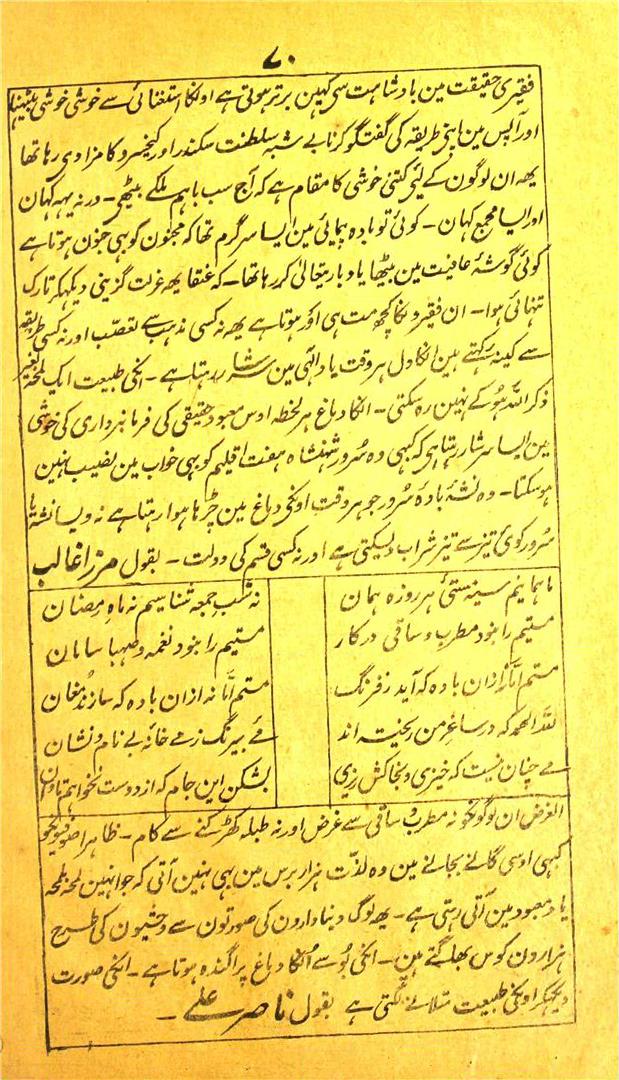 ۷۰
فقیری حقیقت مین بادشاہت سی کہین برتر ہوتی ہے اونکا استغنائی سے خوشی خوشی بیٹہنا
اور آپس مین اپنی طریقہ کی گفتگو کرنا بے شبہ سلطنت سکندر اور کیخسرو کا مزا دی رہا تھا
یھہ ان لوگون کے لیٔی کتنی خوشی کا مقام ہے کہ آج سب باہم ملکے بیٹھی ۔ ورنہ یہہ کہان
اور ایسا مجمع کہان ۔ کوئی تو بادہ پیمائی مین ایسا سرگرم تھا کہ مجنون کو بہی جنون ہوتا ہے
کوئی گوشۂ عافیت مین بیٹھا یاد باریتعالیٰ کر رہا تھا ۔ کہ عنقا یھہ عزلت گزینی دیکھکر تارک
تنہائی ہوا ۔ ان فقیرونکا کچھ مت ہی اور ہوتا ہے یھہ نہ کسی مذہب سے تعصّب اور نہ کسی طریقہ
سے کینہ رکہتے ہین انکا دل ہر وقت یاد الٰہی مین رہتا ہے ۔ انکی طبیعت ایک لمحہ بغیر
ذکر اللہ ہو کے نہین رہ سکتی ۔ انکا دماغ ہر لحظہ اوس معبود حقیقی کی فرمانبرداری کی خوشی
مین ایسا سرشار رہتا ہی کہ کبہی وہ سُرور شہنشاہ ہفت اقلیم کو بہی خواب مین نصیب نہین
ہو سکتا ۔ وہ نشۂ بادۂ سُرور جو ہر وقت اونکی دماغ مین چڑہا ہوا رہتا ہے نہ ویسا نشہ یا
سُرور کوئی تیز سے تیز شراب دیسکتی ہے اور نہ کسی قسم کی دولت ۔ بقول مرزا غالب
ما ہمانیم سیہ مستیٔ ہر روزہ ہمان
نہ شب جمعہ شناسیم نہ ماہ رمضان
مستیم را بنود مطرب و ساقی درکار
مستیم را بنود نغمہ و صہبا سامان
مستم امّا نہ ازان بادہ کہ آید ز فرنگ
مستم امّا نہ ازان بادہ کہ سازند مُغان
للہ الحمد کہ در ساغر من ریختہ اند
مئے بیرنگ ز میخانۂ بے نام و نشان
مے چنان نیست کہ خیزی و بخاکش ریزی
بشکن این جام کہ از دوست نخواہم تاوان
الغرض ان لوگونکو نہ مطرب و ساقی سے غرض اور نہ طبلہ کھڑکنے سے کام ۔ ظاہرا صوفیونکو
کبہی اوسی گانے بجانے مین وہ لذّت ہزار برس مین بہی نہین آتی کہ جو انہین لمحہ بلمحہ
یاد معبود مین آتی رہتی ہے ۔ یھہ لوگ دنیا دارون کی صورتون سے وحشیون کی طرح
ہزارون کوس بھاگتے ہین ۔ انکی بُو سے انکا دماغ پراگندہ ہوتا ہے ۔ انکی صورت
دیکھکر اونکی طبیعت متلانے لگتی ہے بقول ناصر علے ۔